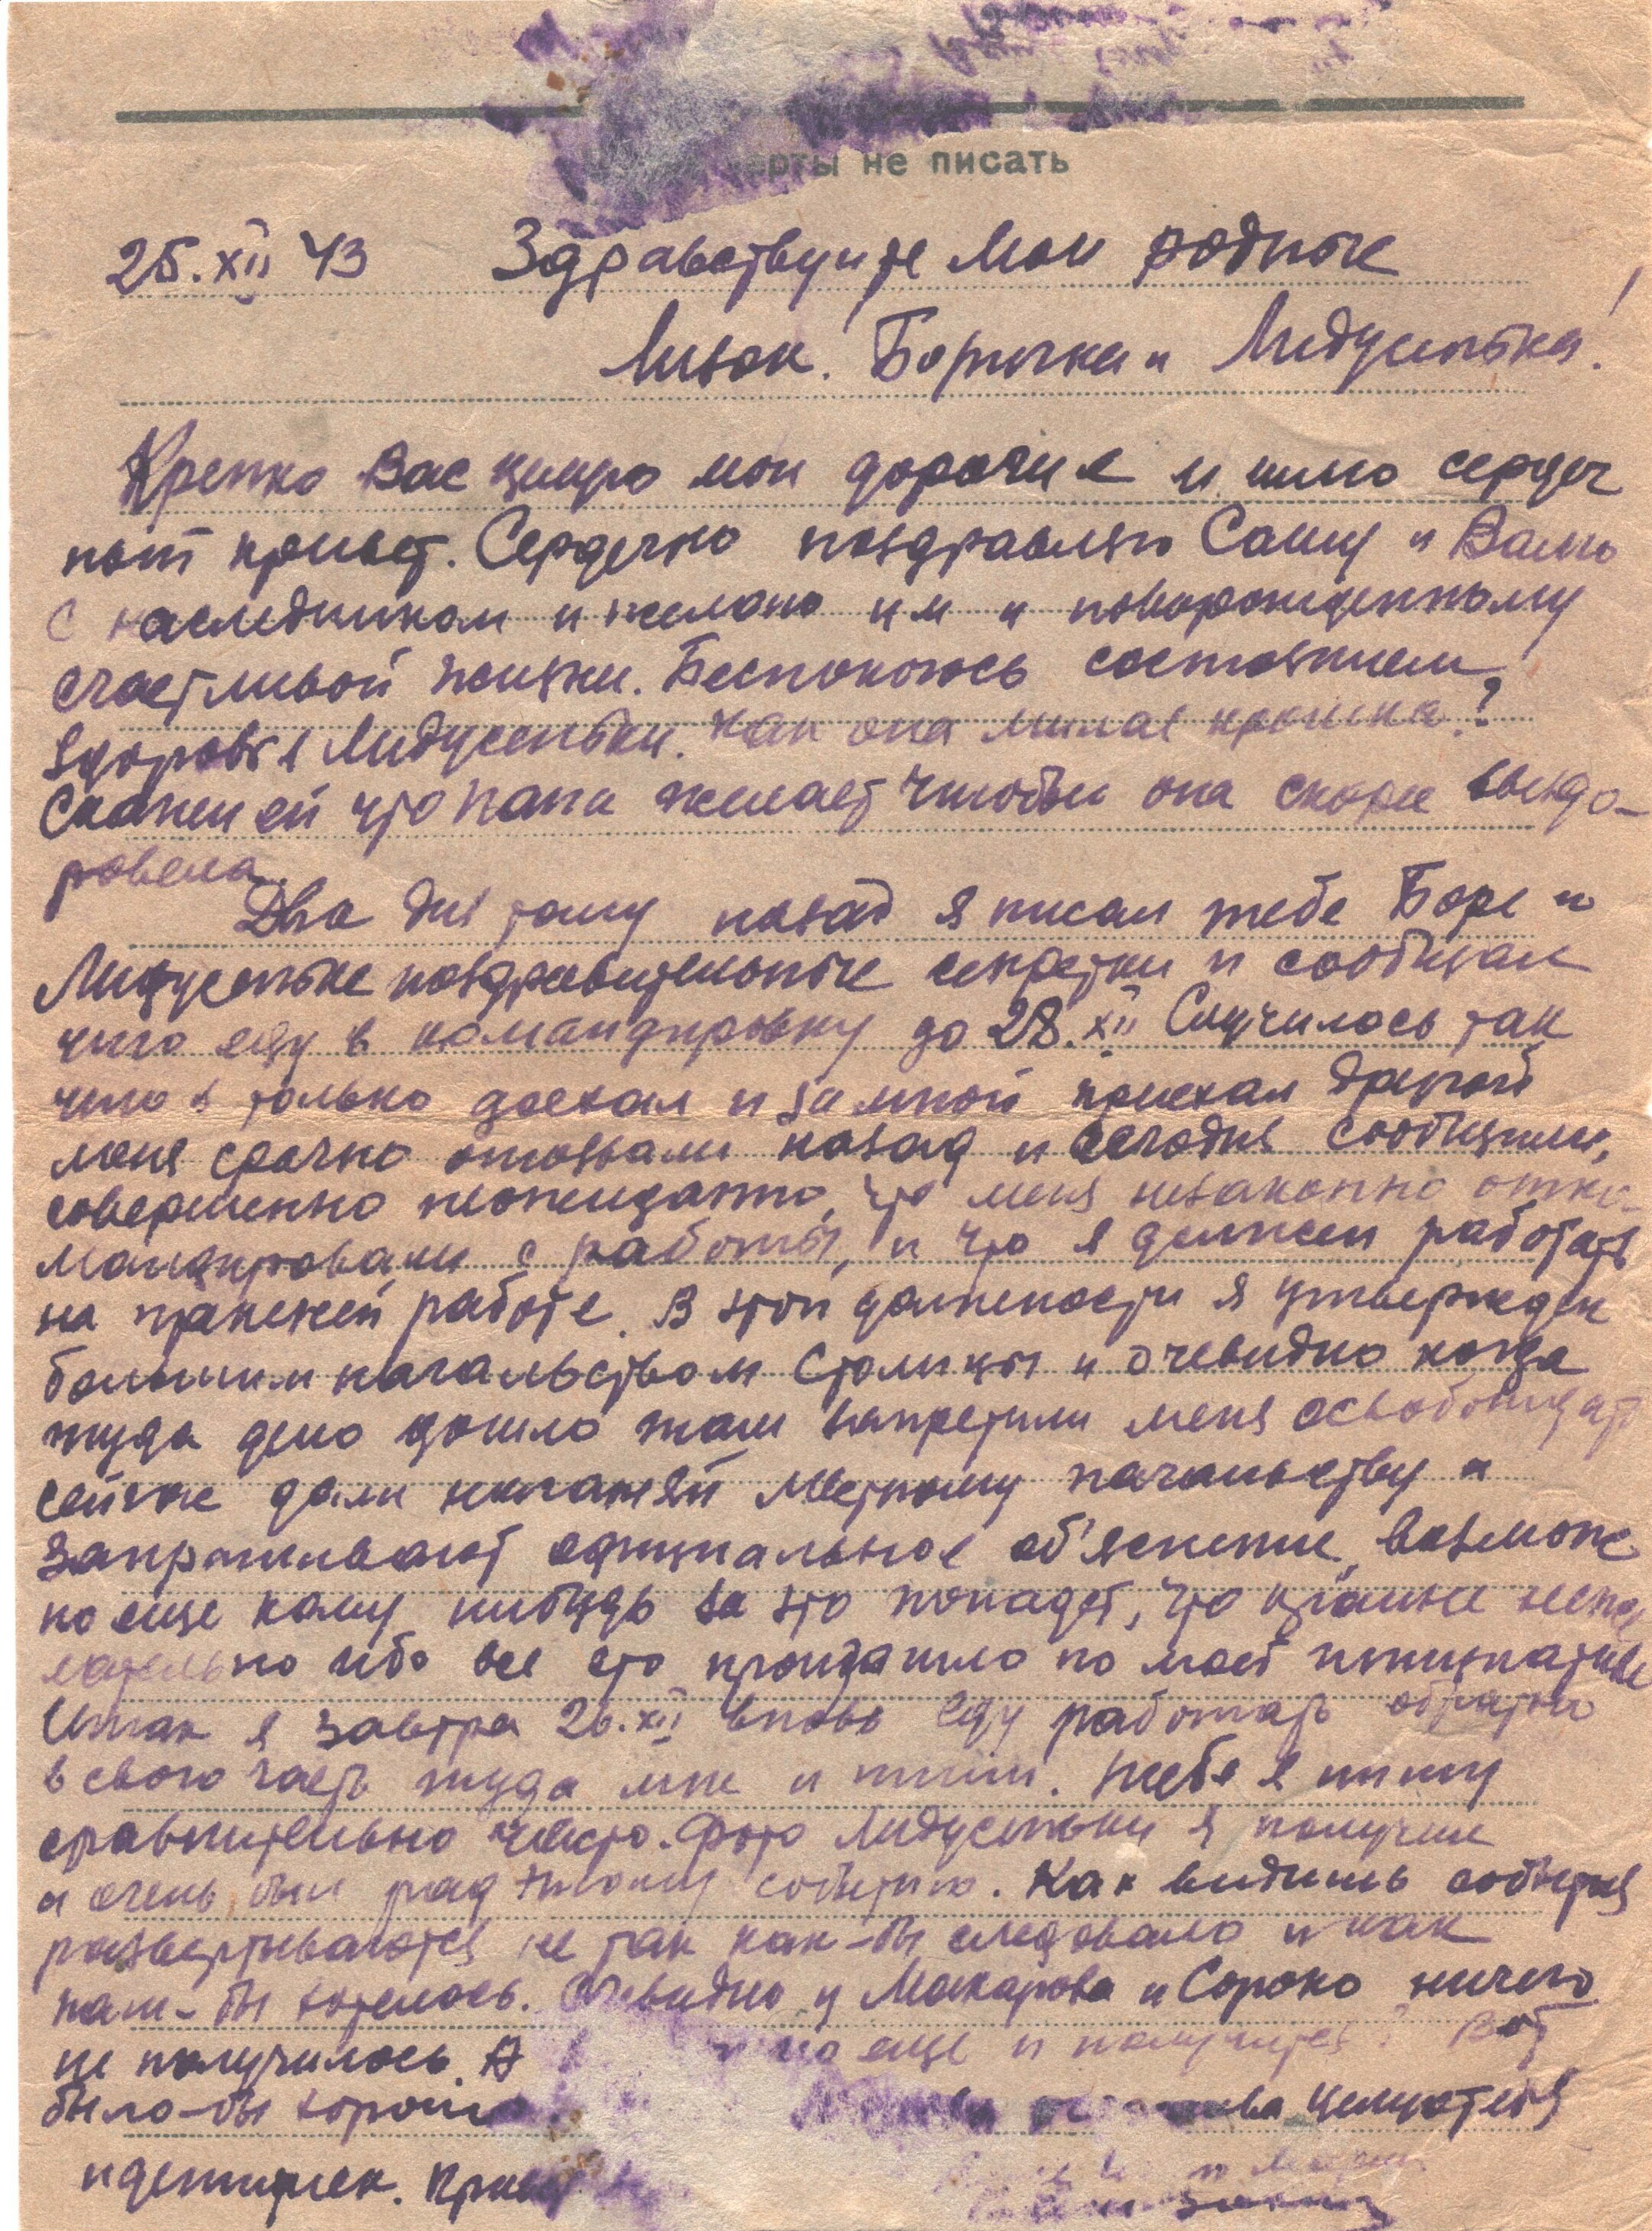 черты не писать
25.XII 43 Здравствуйте мои родные
Лизок! Борточка и Лидусенька!
Крепко Вас целую мои дорогие и шлю сердеч
ный привет. Сердечно поздравляю Сашу и Валю
с наследником и желаю им и новорожденному
счастливой жизни. Беспокоюсь состоянием
здоровья Лидусеньки. Как она милая крошка?
Скажи ей что папа желает чтобы она скорее выздо-
ровела.
Два дня тому назад я писал тебе Боре и
Лидусеньке поздравительные секретки и сообщал
что еду в командировку до 28.XII Случилось так
что я только доехал и за мной приехал другой
меня срочно отозвали назад и сегодня сообщили,
совершенно неожиданно, что меня незаконно отко-
мандировали с работы, и что я должен работать
на прежней работе. В этой должности я утвержден
большим начальством столицы и очевидно когда
туда дело дошло там запретили меня освобождать
сейчас дали нагоняй местному начальству и
запрашивают официальное об'яснение, возмож
но еще кому нибудь за это попадет, что крайне неже
лательно ибо все это произошло по моей инициативе
Итак я завтра 26.XII вновь еду работать обратно
в свою часть туда мне и пиши. Тебе я пишу
сравнительно часто. Фото Лидусеньки я получил
и очень был рад этому событию. Как видишь события
развертываются не так как-бы следовало и как
нам-бы хотелось. Очевидно у Макарова и Сороко ничего
не получилось. А еще и получится? Вот
было-бы хорошо целую тебя
и детишек. Привет